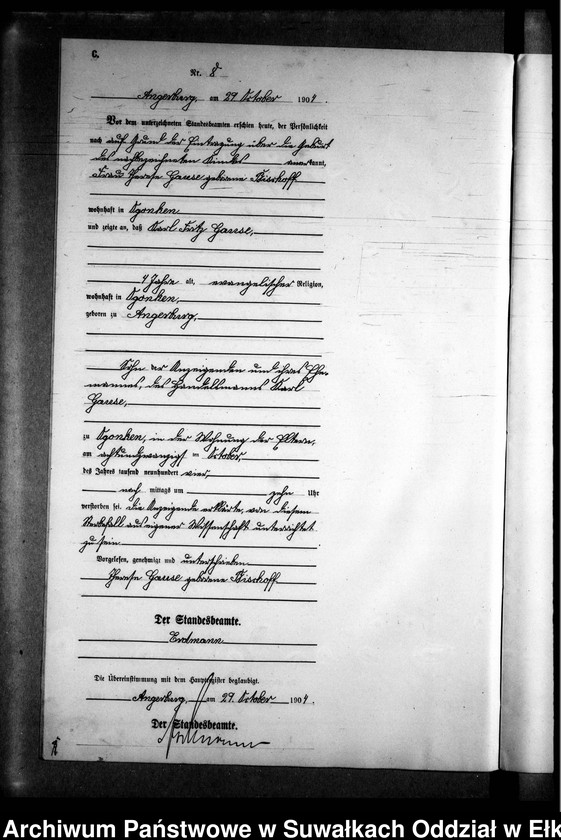 C.
Nr. 8
Angerburg, am 29 October 1904.
Vor dem unterzeichneten Standesbeamten erschien heute, der Persönlichkeit
nach auf Grund der Eintragung über die Geburt
des nachbezeichneten Kindes anerkannt,
Frau Therese Gause geborene Bischoff
wohnhaft in Ogonken
und zeigte an, daß Karl Fritz Gause,
4 Jahre alt, evangelischer Religion,
wohnhaft in Ogonken,
geboren zu Angerburg,
Sohn der Anzeigenden und ihres Ehe-
mannes, des Handelsmanns Karl
Gause,
zu Ogonken, in der Wohnung der Eltern,
am achtundzwanzigst en October,
des Jahres tausend neunhundert vier,
nach mittags um zehn Uhr
verstorben sei. Die Anzeigende erklärte von diesem
Sterbefall aus eigener Wissenschaft unterrichtet
zu sein.
Vorgelesen, genehmigt und unterschrieben
Therese Gause geborene Bischoff
Der Standesbeamte.
Erdmann
Die Übereinstimmung mit dem Hauptregister beglaubigt.
Angerburg, am 29. October 1904.
Der Standesbeamte.
Archiwum Państwowe w Suwałkach Oddział w Ełk